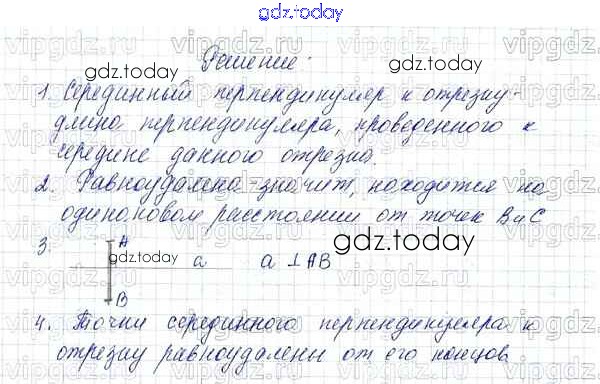 gdz.today
Решение:
1. Серединный перпендикуляр к отрезку -
длина перпендикуляра, проведенного к
середине данного отрезка.
2. Равноудалена - значит, находится на
одинаковом расстоянии от точек В и С
3. А
а а ⊥ АВ
В
4. Точки серединного перпендикуляра к
отрезку равноудалены от его концов
gdz.today
gdz.today
gdz.today
gdz.today
gdz.today
vipgdz